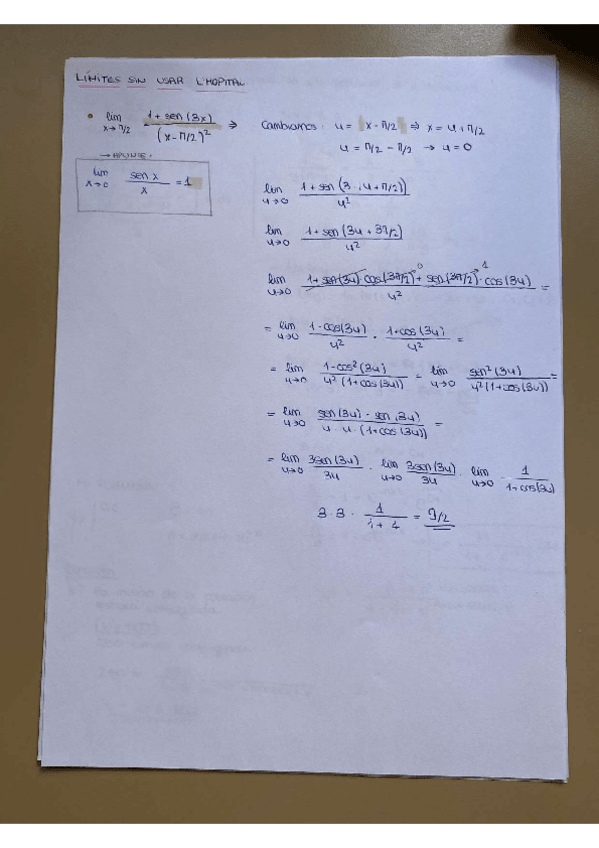 LÍMITES SIN USAR L'HOPITAL
• lim x→π/2 (1 + sen(3x)) / (x - π/2)² ⇒ Cambiamos: u = x - π/2 ⇒ x = u + π/2
u = π/2 - π/2 → u = 0
→ APUNTE:
lim x→0 sen x / x = 1
lim u→0 (1 + sen(3 · u + π/2)) / u²
lim u→0 (1 + sen(3u + 3π/2)) / u²
lim u→0 (1 + sen(3u) · cos(3π/2)→0 + sen(3π/2)→1 · cos(3u)) / u² =
= lim u→0 (1 - cos(3u)) / u² · (1 + cos(3u)) / u² =
= lim u→0 (1 - cos²(3u)) / (u² (1 + cos(3u))) = lim u→0 sen²(3u) / (u² (1 + cos(3u))) =
= lim u→0 (sen(3u) · sen(3u)) / (u · u · (1 + cos(3u))) =
= lim u→0 3sen(3u) / 3u · lim u→0 3sen(3u) / 3u · lim u→0 · 1 / (1 + cos(3u)
3 · 3 · 1 / (1 + 1) = 9/2